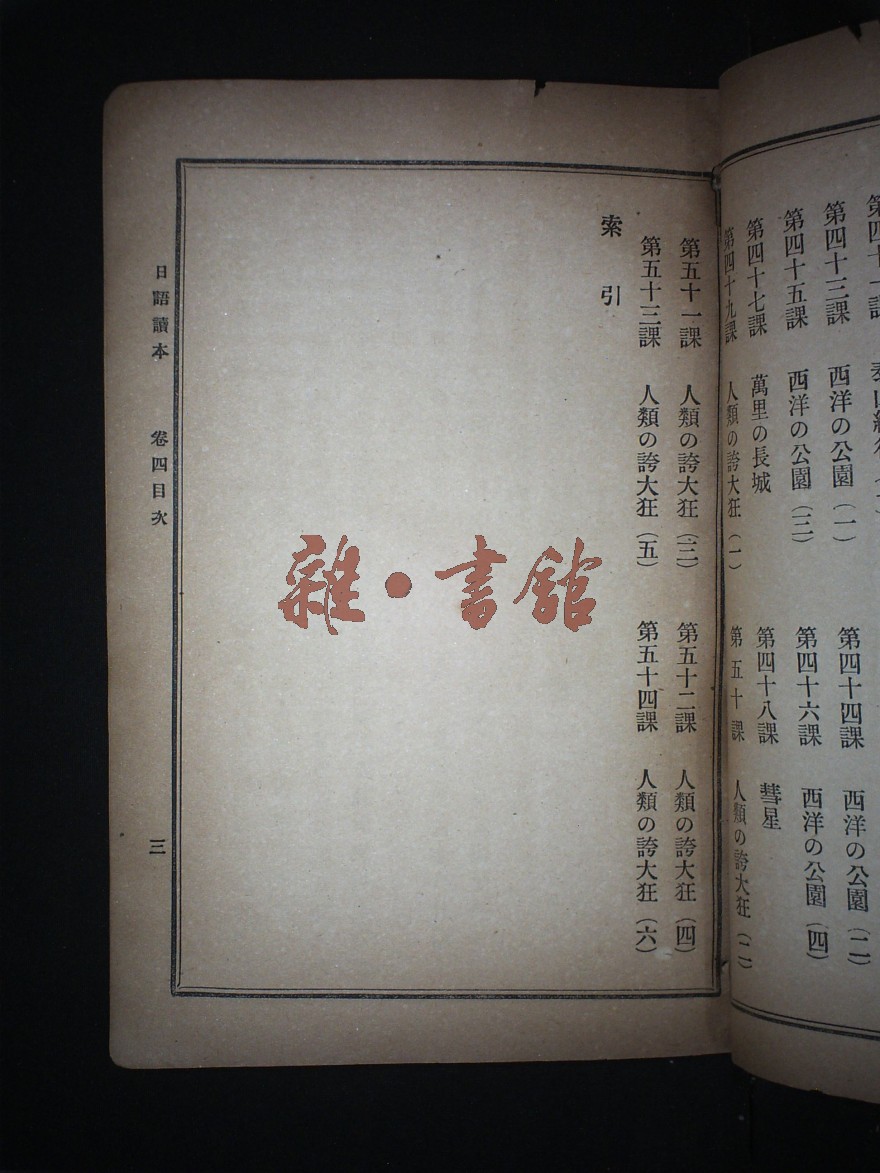 第四十三課 西洋の公園(一)
第四十四課 西洋の公園(二)
第四十五課 西洋の公園(三)
第四十六課 西洋の公園(四)
第四十七課 萬里の長城
第四十八課 彗星
第四十九課 人類の誇大狂(一)
第五十課 人類の誇大狂(二)
第五十一課 人類の誇大狂(三)
第五十二課 人類の誇大狂(四)
第五十三課 人類の誇大狂(五)
第五十四課 人類の誇大狂(六)
索引
日語讀本 卷四目次 三
雜·書館